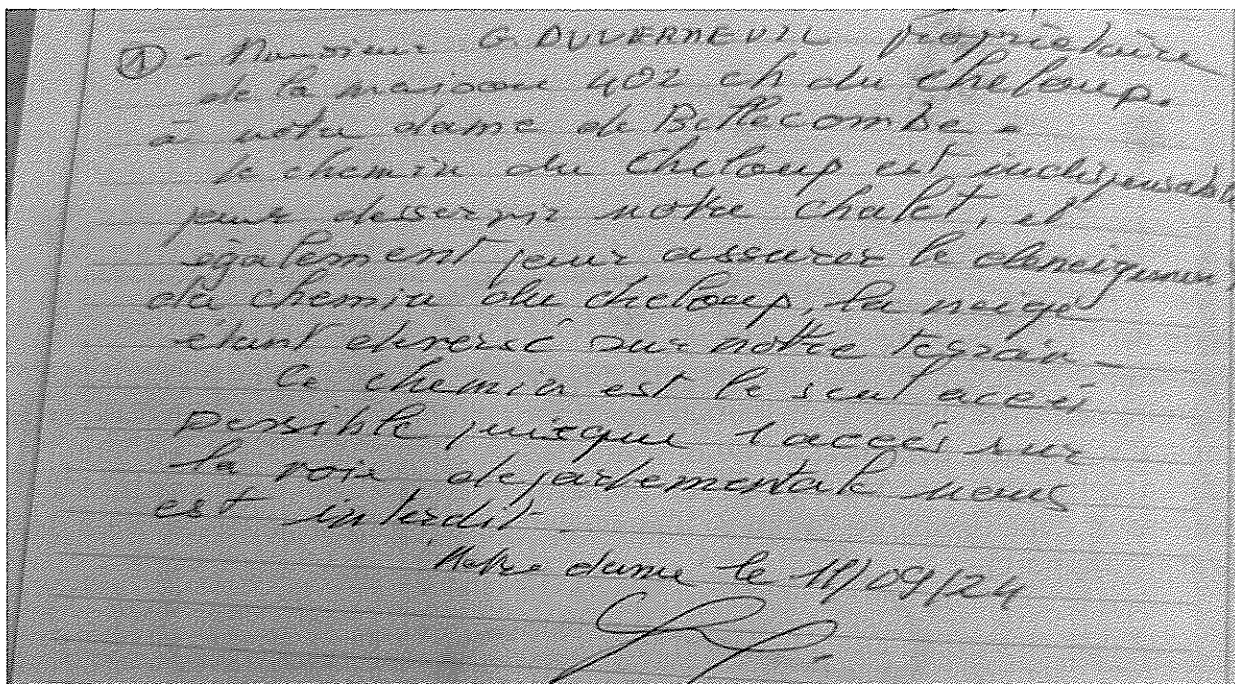 ① - Monsieur G. DUVERNEUIL propriétaire
de la maison 402 ch du cheloup.
à notre dame de Bellecombe.
Le chemin du cheloup est indispensable
pour desservir notre chalet, et
également pour assurer le déneigement
du chemin du cheloup, la neige
étant déversé sur notre terrain -
Ce chemin est le seul accès
possible puisque l'accès sur
la voie départementale nous
est interdit.
Notre dame le 11/09/24